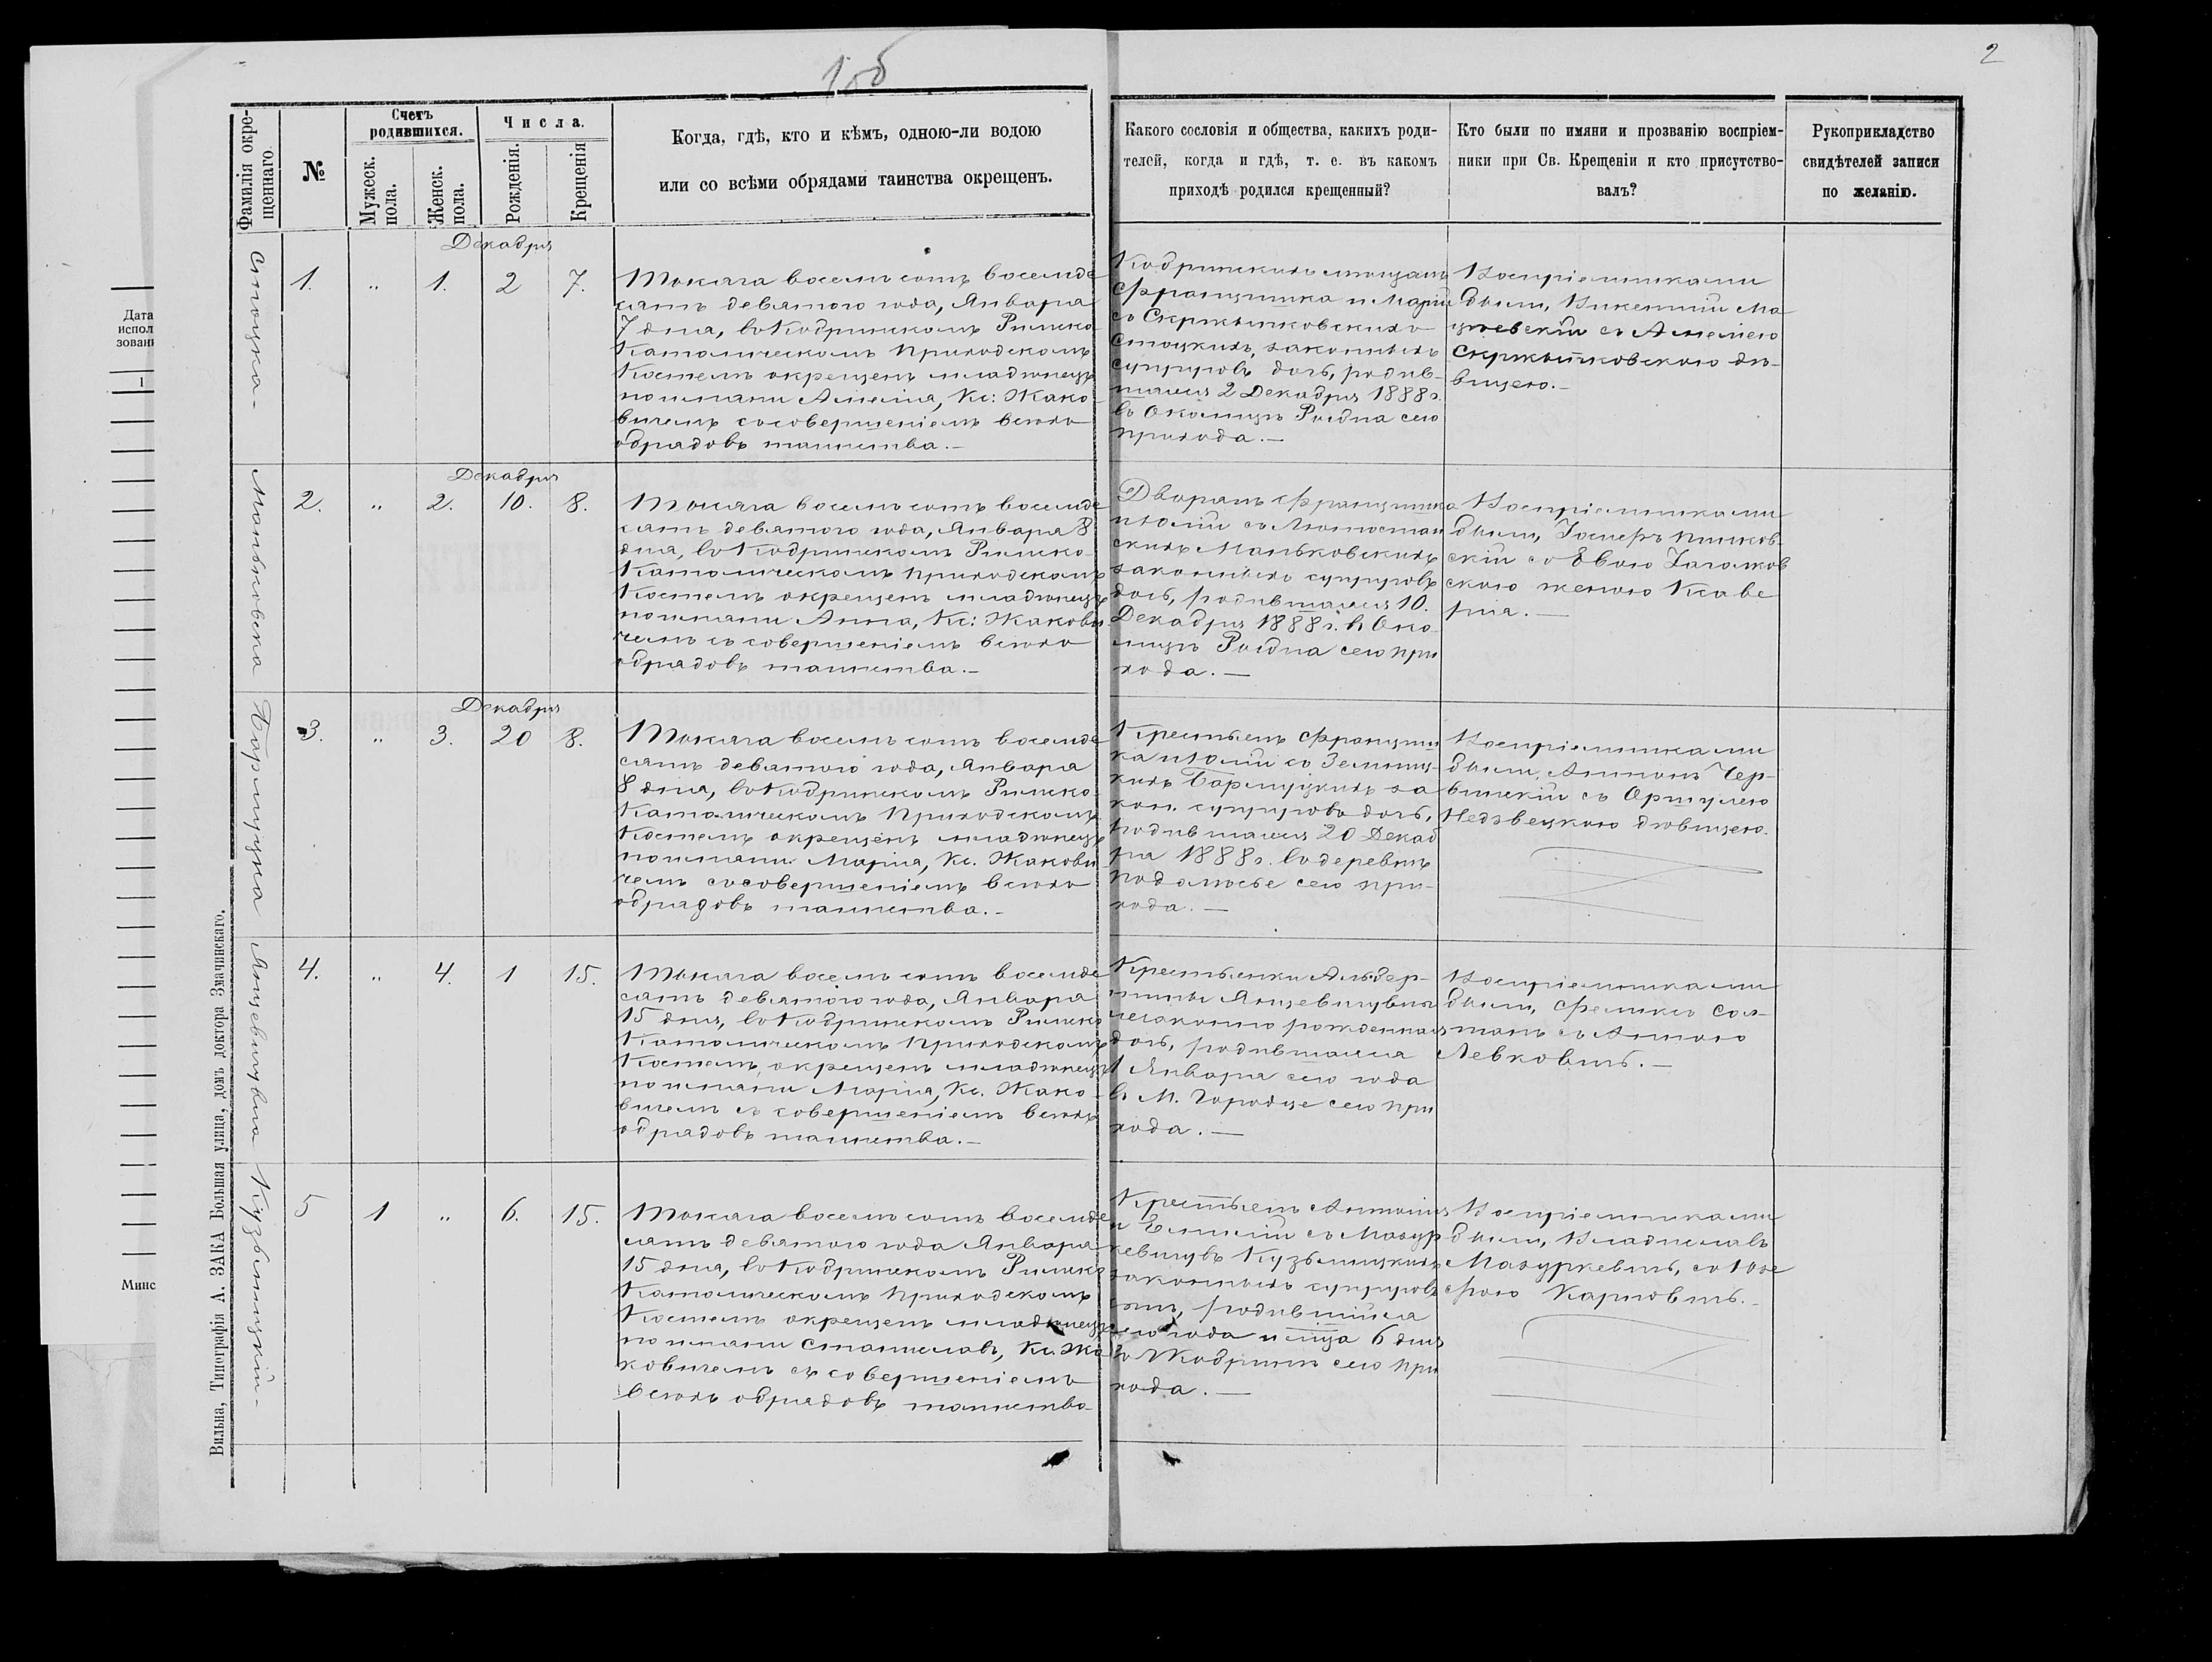 1об
2
Дата
испол
зовани
1
Минс
Вильна, Типографія А. ЗАКА Большая улица, домъ доктора Змачинскаго.
Фамилія окре-
щеннаго
№
Счетъ
родившихся.
Мужеск.
пола.
Женск.
пола.
Числа.
Рожденія.
Крещенія
Когда, гдѣ, кто и кѣмъ, одною-ли водою
или со всѣми обрядами таинства окрещенъ.
Какого сословія и общества, какихъ роди-
телей, когда и гдѣ, т. е. въ какомъ
приходѣ родился крещенный?
Кто были по имяни и прозванію воспріем-
ники при Св. Крещеніи и кто присутство-
валъ?
Рукоприкладство
свидѣтелей записи
по желанію.
Стоцка-
Декабря
1. " 1. 2 7.
Тысяча восемь сотъ восемьде
сятъ девятого года, Января
7 дня, въ Кобринскомъ Римско
Католическомъ Приходскомъ
Костелѣ окрещенъ младенецъ
по имяни Амелія, Кс: Жако
вичемъ съ совершеніемъ всѣхъ
обрядовъ таинства.-
Кобринскихъ мѣщанъ
Францишка и Маріи
съ
Стоцкихъ, законныхъ
супруговъ дочь, родив-
шаяся 2 Декабря 1888 г.
въ Околицѣ сего
прихода.-
Воспріемниками
были, Викентій Ма
съ Амеліею
дѣ-
вицею.-
Маньковска
Декабря
2. " 2. 10. 8.
Тысяча восемь сотъ восемьде
сятъ девятого года, Января 8
дня, въ Кобринскомъ Римско-
Католическомъ Приходскомъ
Костелѣ окрещенъ младенецъ
по имяни Анна, Кс: Жакови
чемъ съ совершеніемъ всѣхъ
обрядовъ таинства.-
Дворянъ Францишка
и Юліи съ
скихъ Маньковскихъ
законныхъ супруговъ
дочь, родившаяся 10.
Декабря 1888 г. въ Око
лицѣ сего при
хода.-
Воспріемниками
были, Іосифъ
скій съ Евою
скою женою Ксаве
рія.-
Бармуцкна
Декабря
3. " 3. 20 8.
Тысяча восемь сотъ восемьде
сятъ девятого года, Января
8 дня, въ Кобринскомъ Римско-
Католическомъ Приходскомъ
Костелѣ окрещенъ младенецъ
по имяни Марія, Кс. Жакови
чемъ съ совершеніемъ всѣхъ
обрядовъ таинства.-
Крестьянъ Францишка
ка и Юліи съ
кихъ Бармуцкихъ за
кон. супруговъ дочь,
родившаяся 20 Декаб
ря 1888 г. въ деревнѣ
Подолесье сего при-
хода.-
Воспріемниками
были, Антонъ Чер-
винскій съ Оршулею
Недзвецкою дѣвицею.
Янцевичувна
4. " 4. 1 15.
Тысяча восемь сотъ восемьде
сятъ девятого года, Января
15 дня, въ Кобринскомъ Римско
Католическомъ Приходскомъ
Костелѣ, окрещенъ младенецъ
по имяни Марія, Кс. Жако
вичемъ съ совершеніемъ всѣхъ
обрядовъ таинства.-
Крестьянки Альбер-
тины Янцевичувны
незаконно рожденная
дочь, родившаяся
1 Января сего года
въ М. Городцѣ сего при
хода.-
Воспріемниками
были, Феликсъ Сол-
танъ съ Анною
Левковичъ.-
Кузьмицкій-
5 1 " 6. 15.
Тысяча восемь сотъ восемьде
сятъ девятого года Января
15 дня, въ Кобринскомъ Римско
Католическомъ Приходскомъ
Костелѣ окрещенъ младенецъ
по имяни Станиславъ, Кс. Жа
ковичемъ съ совершеніемъ
всѣхъ обрядовъ таинства
Крестьянъ Антонія
и Емиліи съ Мазур-
кевичувъ Кузьмицкихъ
законныхъ супруговъ
сынъ, родившійся
сего года и мца 6 дня
въ Кобринѣ сего при
хода.-
Воспріемниками
были, Владиславъ
Мазуркевичъ, съ Юзе
фою Карповичъ.-